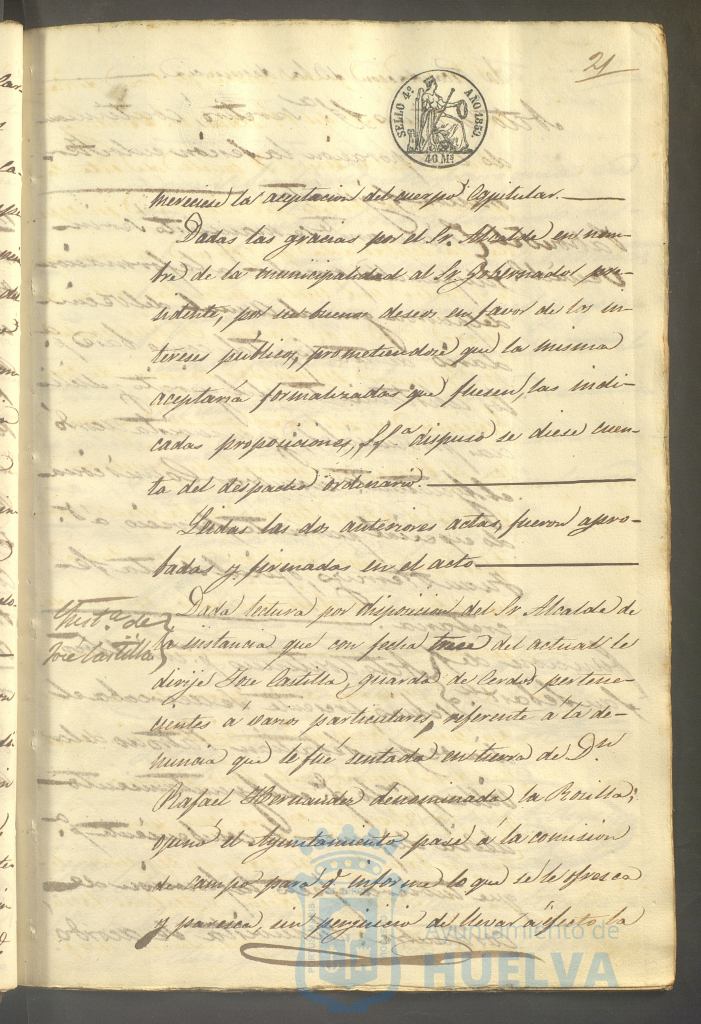 21
SELLO 4º AÑO 1859
40 Ms
mereciese la aceptacion del cuerpo Capitular.
Dadas las gracias por el Sr. Alcalde en nom-
bre de la municipalidad al Sr. Gobernador pre-
sidente, por sus buenos deseos en favor de los in-
tereses publicos, prometiendose que la misma
aceptaria formalizadas que fuesen, las indi-
cadas proposiciones, S. Sª dispuso se diese cuen-
ta del despacho ordinario.
Leidas las dos anteriores actas, fueron apro-
badas y firmadas en el acto
Instª de
José Castilla
Dada lectura por disposicion del Sr Alcalde de
la instancia que con fecha trece del actual le
dirije José Castilla, guarda de Cerdos pertene-
cientes á varios particulares, referente á la de-
nuncia que le fué sentada en tierra de Dn
Rafael Hernandez denominada la Rocilla;
opinó el Ayuntamiento pase á la comision
de campo para qe informe lo que se le ofresca
y paresca, sin perjuicio de llevar á efecto la
Ayuntamiento de
HUELVA